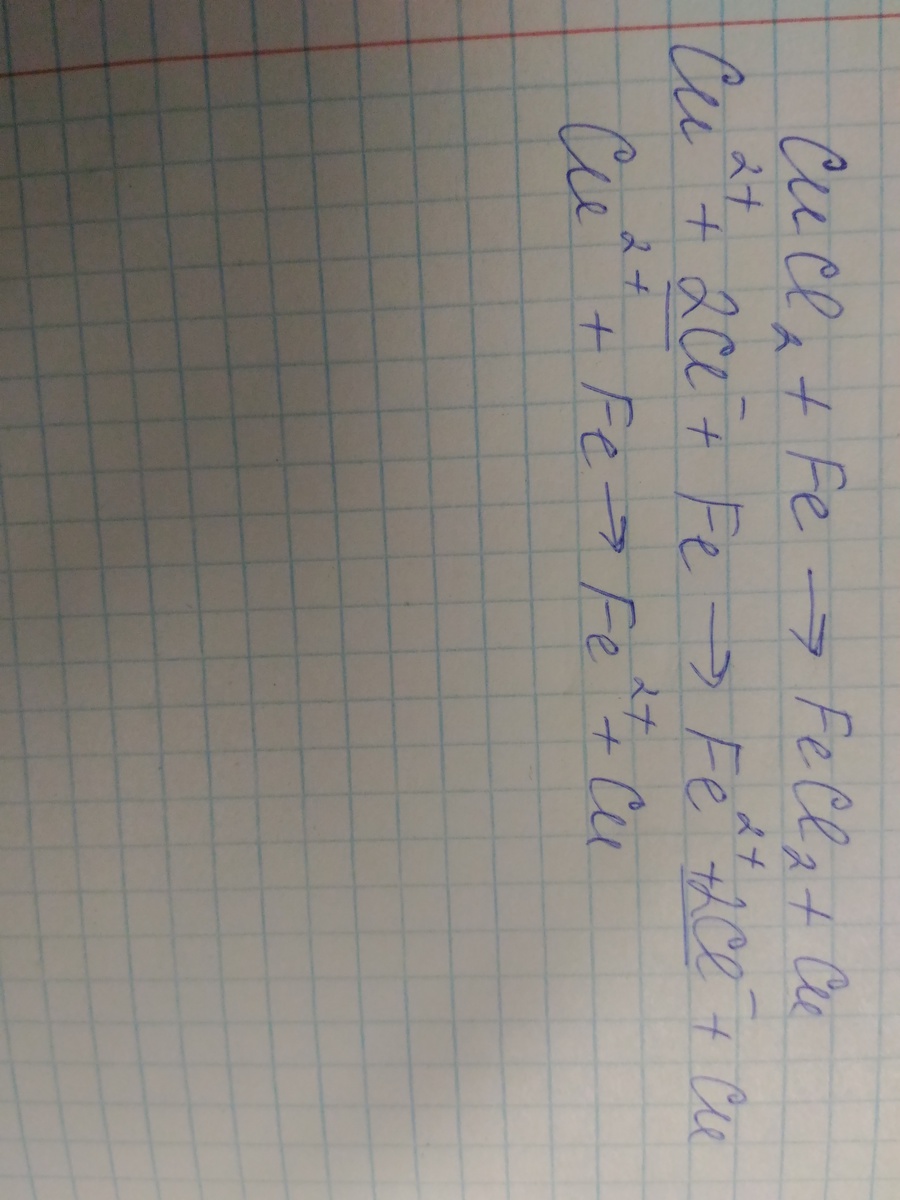 CuCl₂ + Fe → FeCl₂ + Cu
Cu²⁺ + 2Cl⁻ + Fe → Fe²⁺ + 2Cl⁻ + Cu
Cu²⁺ + Fe → Fe²⁺ + Cu